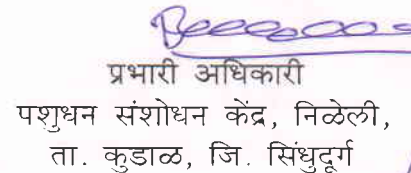 प्रभारी अधिकारी
पशुधन संशोधन केंद्र, निळेली,
ता. कुडाळ, जि. सिंधुदूर्ग